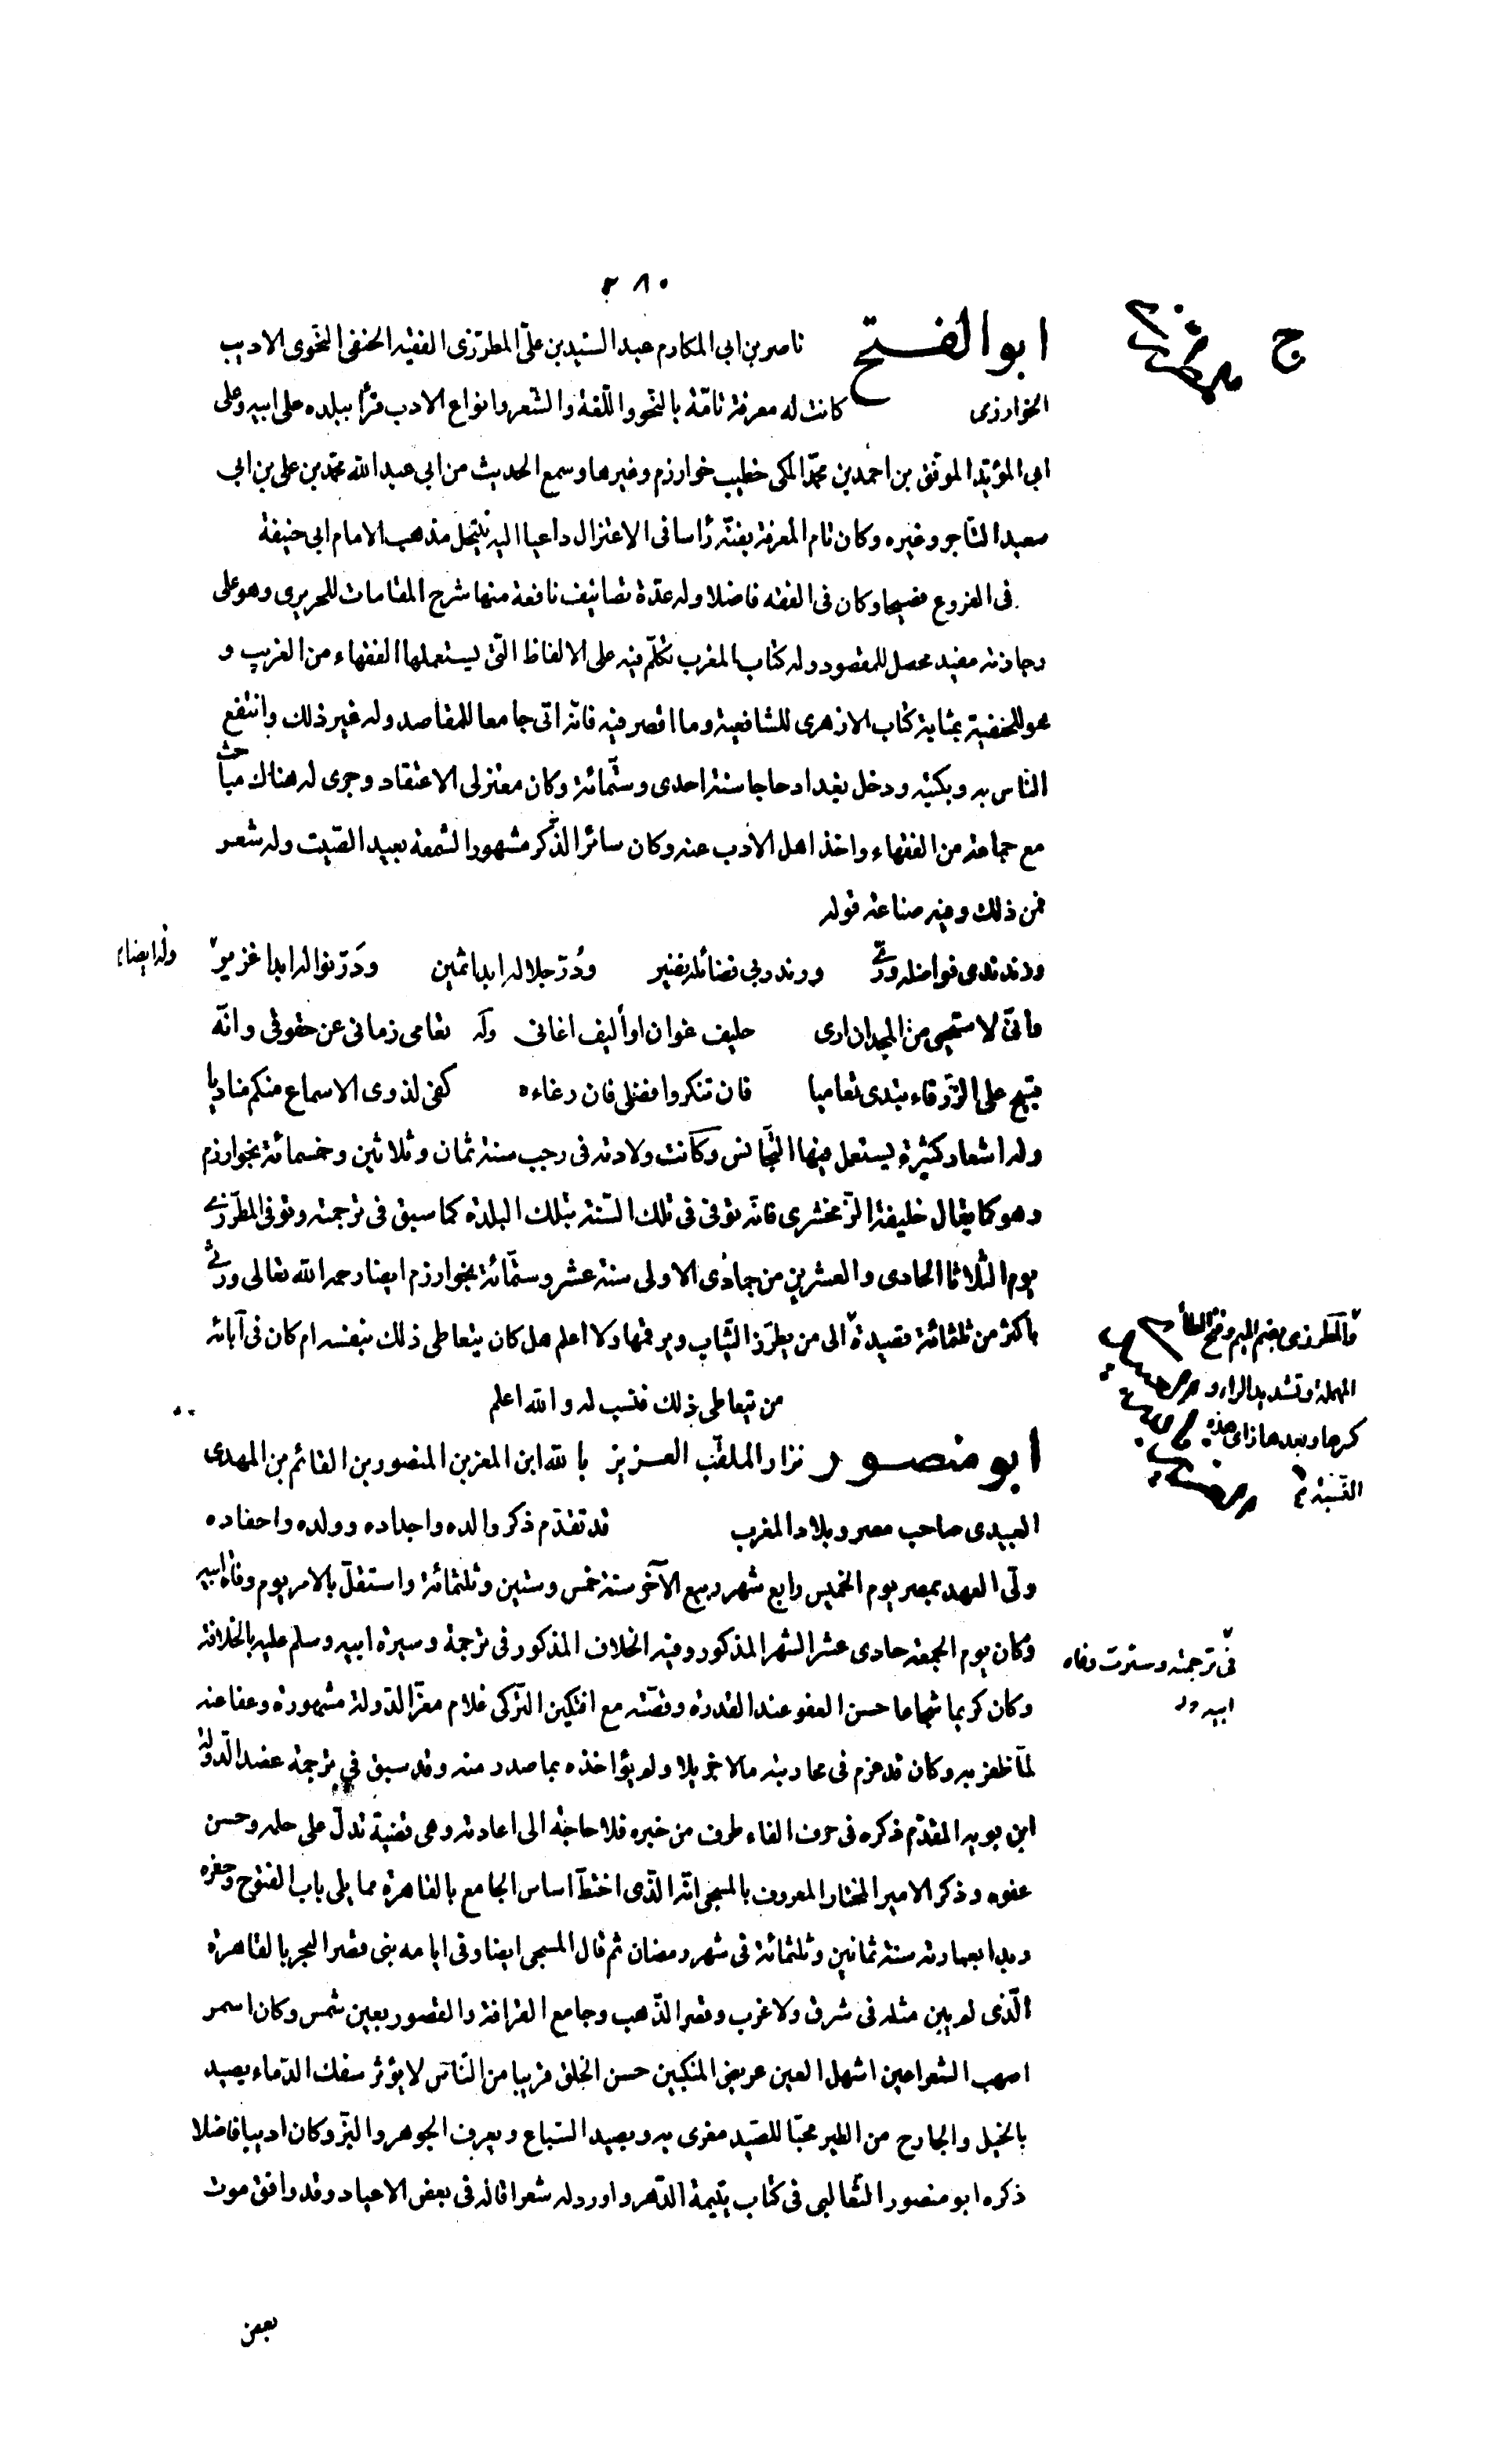 ٢٨٠
ابو الفتح ناصر بن ابى المكارم عبد السيد بن علىّ المطرّزى الفقيه الحنفى النحوى الاديب
الخوارزمى كانت له معرفة تامّة بالنحو واللّغة والشعر وانواع الادب قرأ ببلده على ابيه وعلى
ابى المؤيّد الموفق بن احمد بن محمّد المكى خطيب خوارزم وغيرها وسمع الحديث من ابى عبد الله محمّد بن على بن ابى
سعيد التّاجر وغيره وكان تام المعرفة بفنّه رأسا فى الاعتزال داعيا اليه ينتحل مذهب الامام ابى حنيفة
فى الفروع فصيحا وكان فى الفقه فاضلا وله عدّة تصانيف نافعة منها شرح المقامات للحريرى وهو على
وجازته مفيد محصل للمقصود وله كتاب المغرب تكلّم فيه على الالفاظ التى يستعملها الفقهاء من الغريب و
هو للحنفية بمثابة كتاب الازهرى للشافعية وما اقصر فيه فانّه اتى جامعا للمقاصد وله غير ذلك وانتفع
النّاس به وبكتبه ودخل بغداد حاجا سنة احدى وستّمائة وكان معتزلى الاعتقاد وجرى له هناك مباحث
مع جماعة من الفقهاء واخذ اهل الادب عنه وكان سائر الذّكر مشهور السّمعة بعيد الصّيت وله شعر
فمن ذلك وفيه صناعة قوله
وزند ندى فواضله ورىّ ورند ربى فضائله نضير ودُرّ جلاله ابدا ثمين ودَرّ نواله ابدا غزير
وله ايضا
فانّى لا ستحيى من المجد ان ارى حليف غوان او أليف اغانى وله تعامى زمانى عن حقوقى وانّه
قبيح على الزّرقاء تبدى تعاميا فان تنكروا فضلى فان رغاءه كفى لذوى الاسماع منكم مناديا
وله اشعار كثيرة يستعمل فيها التّجانس وكانت ولادته فى رجب سنة ثمان وثلاثين وخمسمائة بخوارزم
وهو كما يقال خليفة الزّمخشرى فانّه توفى فى تلك السّنة بتلك البلدة كما سبق فى ترجمته وتوفى المطرّزى
يوم الثّلاثا الحادى والعشرين من جمادى الاولى سنة عشر وستّمائة بخوارزم ايضا رحمه الله تعالى ورثى
باكثر من ثلثمائة قصيدة الى من يطرّز الثّياب ويرقمها ولا اعلم هل كان يتعاطى ذلك بنفسه ام كان فى آبائه
من يتعاطى ذلك فنسب له والله اعلم
والمطرزى بضم الميم وفتح الطاء
المهملة وتشديد الراء و
كسرها وبعدها زاى هذه
النّسبة
ابو منصور نزار الملقّب العزيز بالله ابن المعز بن المنصور بن القائم بن المهدى
العبيدى صاحب مصر وبلاد المغرب قد تقدّم ذكر والده واجداده وولده واحفاده
ولّى العهد بمصر يوم الخميس رابع شهر ربيع الآخر سنة خمس وستين وثلثمائة واستقلّ بالامر يوم وفاة ابيه
وكان يوم الجمعة حادى عشر الشهر المذكور وفيه الخلاف المذكور فى ترجمة وسيرة ابيه وسلم عليه بالخلافة
فى ترجمته وسترت وفاه
ابيه
وكان كريما شجاعا حسن العفو عند القدرة وقصّته مع افتكين التركى غلام معزّ الدّولة مشهورة وعفا عنه
لمّا ظفر به وكان قد غرم فى محاربته مالا جزيلا ولم يؤاخذه بما صدر منه وقد سبق فى ترجمة عضد الدّولة
ابن بويه المقدّم ذكره فى حرف الفاء طرف من خبره فلا حاجة الى اعادته وهى قضية تدلّ على حلمه وحسن
عفوه وذكر الامير المختار المعروف بالمسبحى انّه الّذى اختطّ اساس الجامع بالقاهرة مما يلى باب الفتوح وحفره
وبدا بعمارته سنة ثمانين وثلثمائة فى شهر رمضان ثم قال المسبحى ايضا وفى ايامه بنى قصر البحر بالقاهرة
الّذى لم يبن مثله فى شرق ولا غرب وقصر الذّهب وجامع القرافة والقصور بعين شمس وكان اسمر
اصهب الشعر اعين اشهل العين عريض المنكبين حسن الخلق قريبا من النّاس لا يؤثر سفك الدّماء بصيد
بالخيل والجارح من الطير محبّا للصّيد مغرى به وبصيد السّباع ويعرف الجوهر والبزّ وكان اديبا فاضلا
ذكره ابو منصور الثّعالبى فى كتاب يتيمة الدّهر واورد له شعرا قاله فى بعض الاعياد وقد وافق موت
بعض